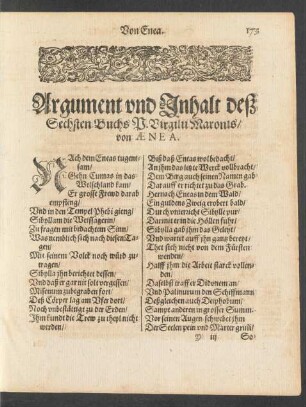 Von Enea.
173
Argument vnd Inhalt deß
Sechsten Buchs P. Virgilii Maronis/
von ÆNEA.
NAch dem Eneas tugent-
sam/
Gehn Cumas in das
Welschland kam/
Er grosse Frewd darab
empfieng/
Vnd in den Tempel Phebi gieng/
Sibyllam die Weissagern/
Zu fragen mit bedachtem Sinn/
Was nemblich sich nach diesen Ta-
gen/
Mit seinem Volck noch würd zu-
tragen/
Sibylla ihn berichtet dessen/
Vnd daß er gar nit solt vergessen/
Misenum zubegraben fort/
Deß Cörper lag am Vfer dort/
Noch vnbestätigt zu der Erden/
Ihm kundt die Trew zu theyl nicht
werden/
Biß daß Eneas wolbedacht/
An ihm das letzte Werck vollbracht/
Dem Berg auch seinen Namen gab
Dar auff er richtet zu das Grab.
Hernach Eneas in dem Wald/
Ein guldene Zweig erobert bald/
Durch vnterricht Sibylle pur/
Darmit er in die Höllen fuhr/
Sibylla gab ihm das Geleyt/
Vnd wartet auff ihn gantz bereyt/
Thet sich nicht von dem Fürsten
wenden/
Halff ihm die Arbeit starck vollen-
den/
Daselbst traff er Didonem an/
Vnd Palinurum den Schiffmann/
Deßgleichen auch Deiphobum/
Sampt anderen in grosser Summ.
Vor seinen Augen schwebet ihm
Der Seelen pein vnd Marter grim/
P iij
So/